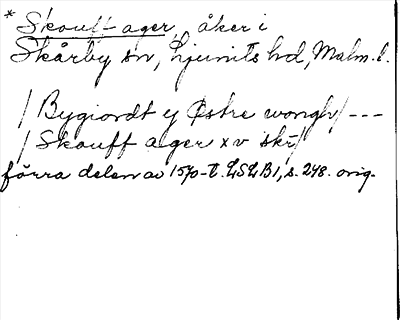 * Skouff ager, åker i
Skårby sn, Ljunits hd, Malm. l.
/ Bygiordt y Østre wongh / ---
/ Skouff ager xv skr /
förra delen av 1570-t. LSLB1, s. 248. orig.